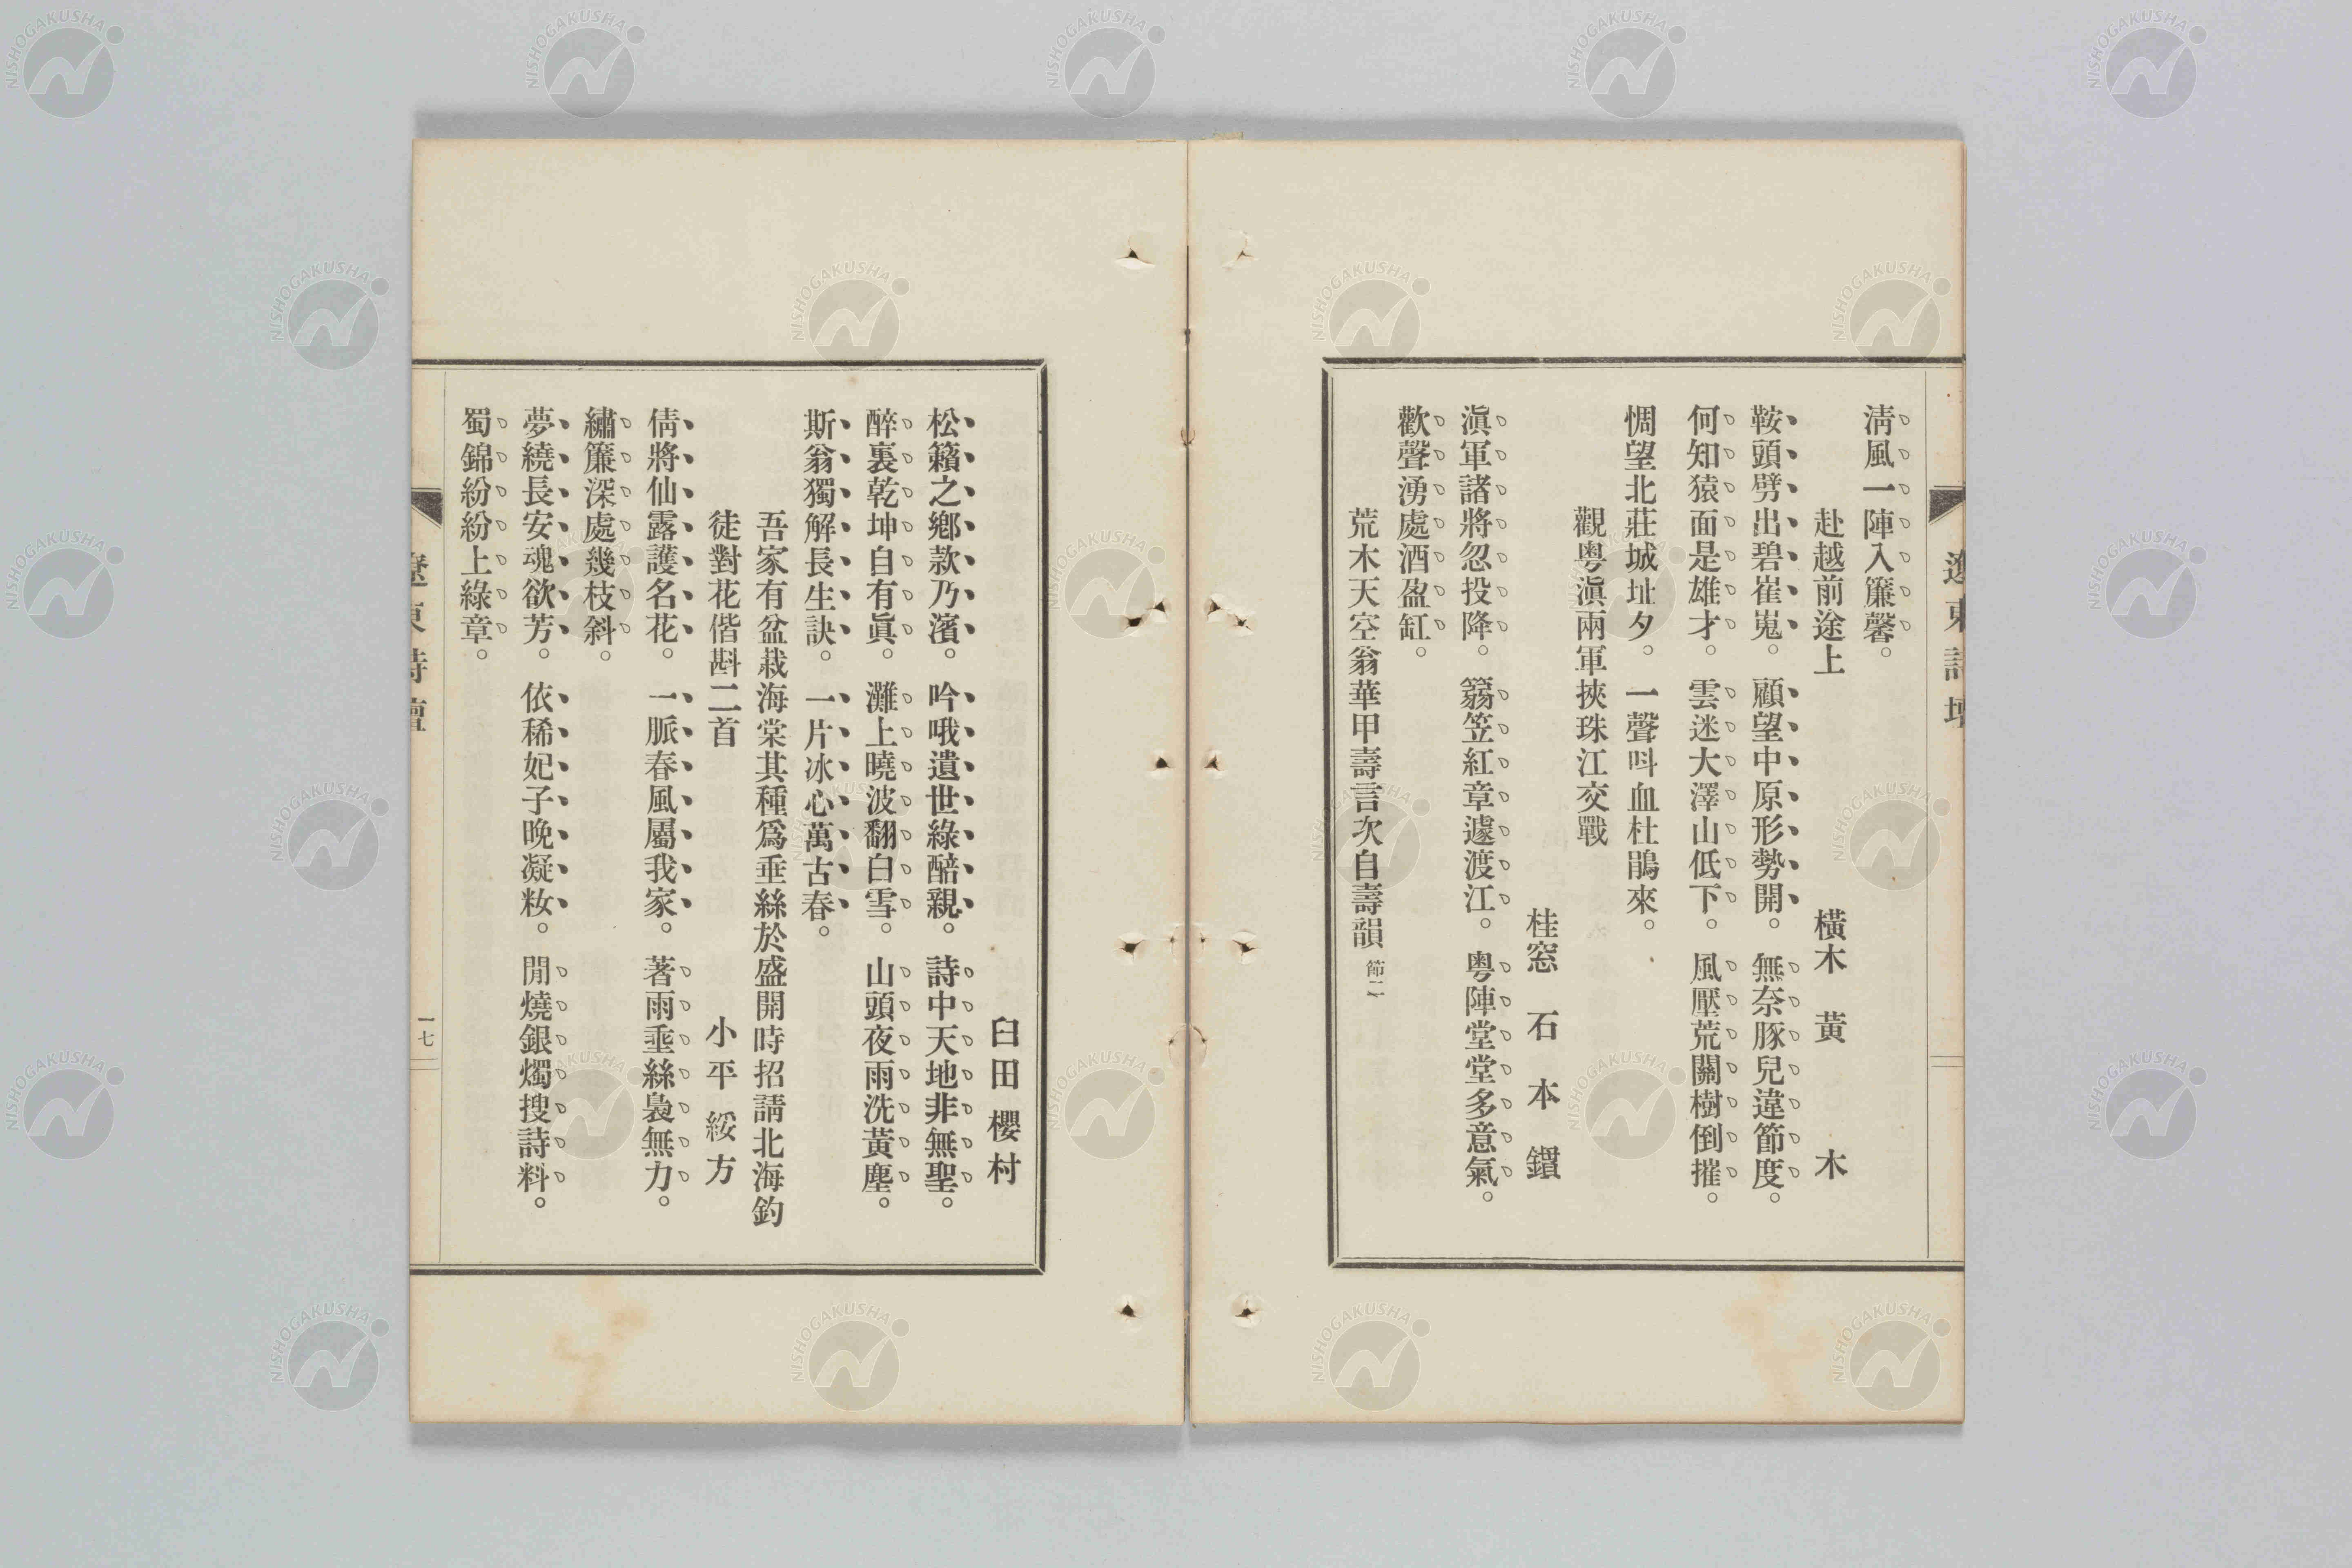 遼東詩壇
淸風一陣入簾馨。
赴越前途上　橫木黃木
鞍頭劈出碧崔嵬。顧望中原形勢開。無奈豚兒違節度。
何知猿面是雄才。雲迷大澤山低下。風壓荒關樹倒摧。
惆望北莊城址夕。一聲呌血杜鵑來。
觀粵滇兩軍挾珠江交戰
桂窓石本鏆
滇軍諸將忽投降。篛笠紅章遽渡江。粵陣堂堂多意氣。
歡聲湧處酒盈缸。
荒木天空翁華甲壽言次自壽韻 節二
臼田櫻村
松籟之鄕款乃濱。吟哦遺世綠醅親。詩中天地非無聖。
醉裏乾坤自有眞。灘上曉波翻白雪。山頭夜雨洗黃塵。
斯翁獨解長生訣。一片冰心萬古春。
吾家有盆栽海棠其種爲垂絲於盛開時招請北海釣
徒對花偕斟二首　小平綏方
倩將仙露護名花。一脈春風屬我家。著雨垂絲裊無力。
繡簾深處幾枝斜。
夢繞長安魂欲芳。依稀妃子晚凝妝。閒燒銀燭搜詩料。
蜀錦紛紛上綠章。
遼東詩壇
一七
NISHOGAKUSHA